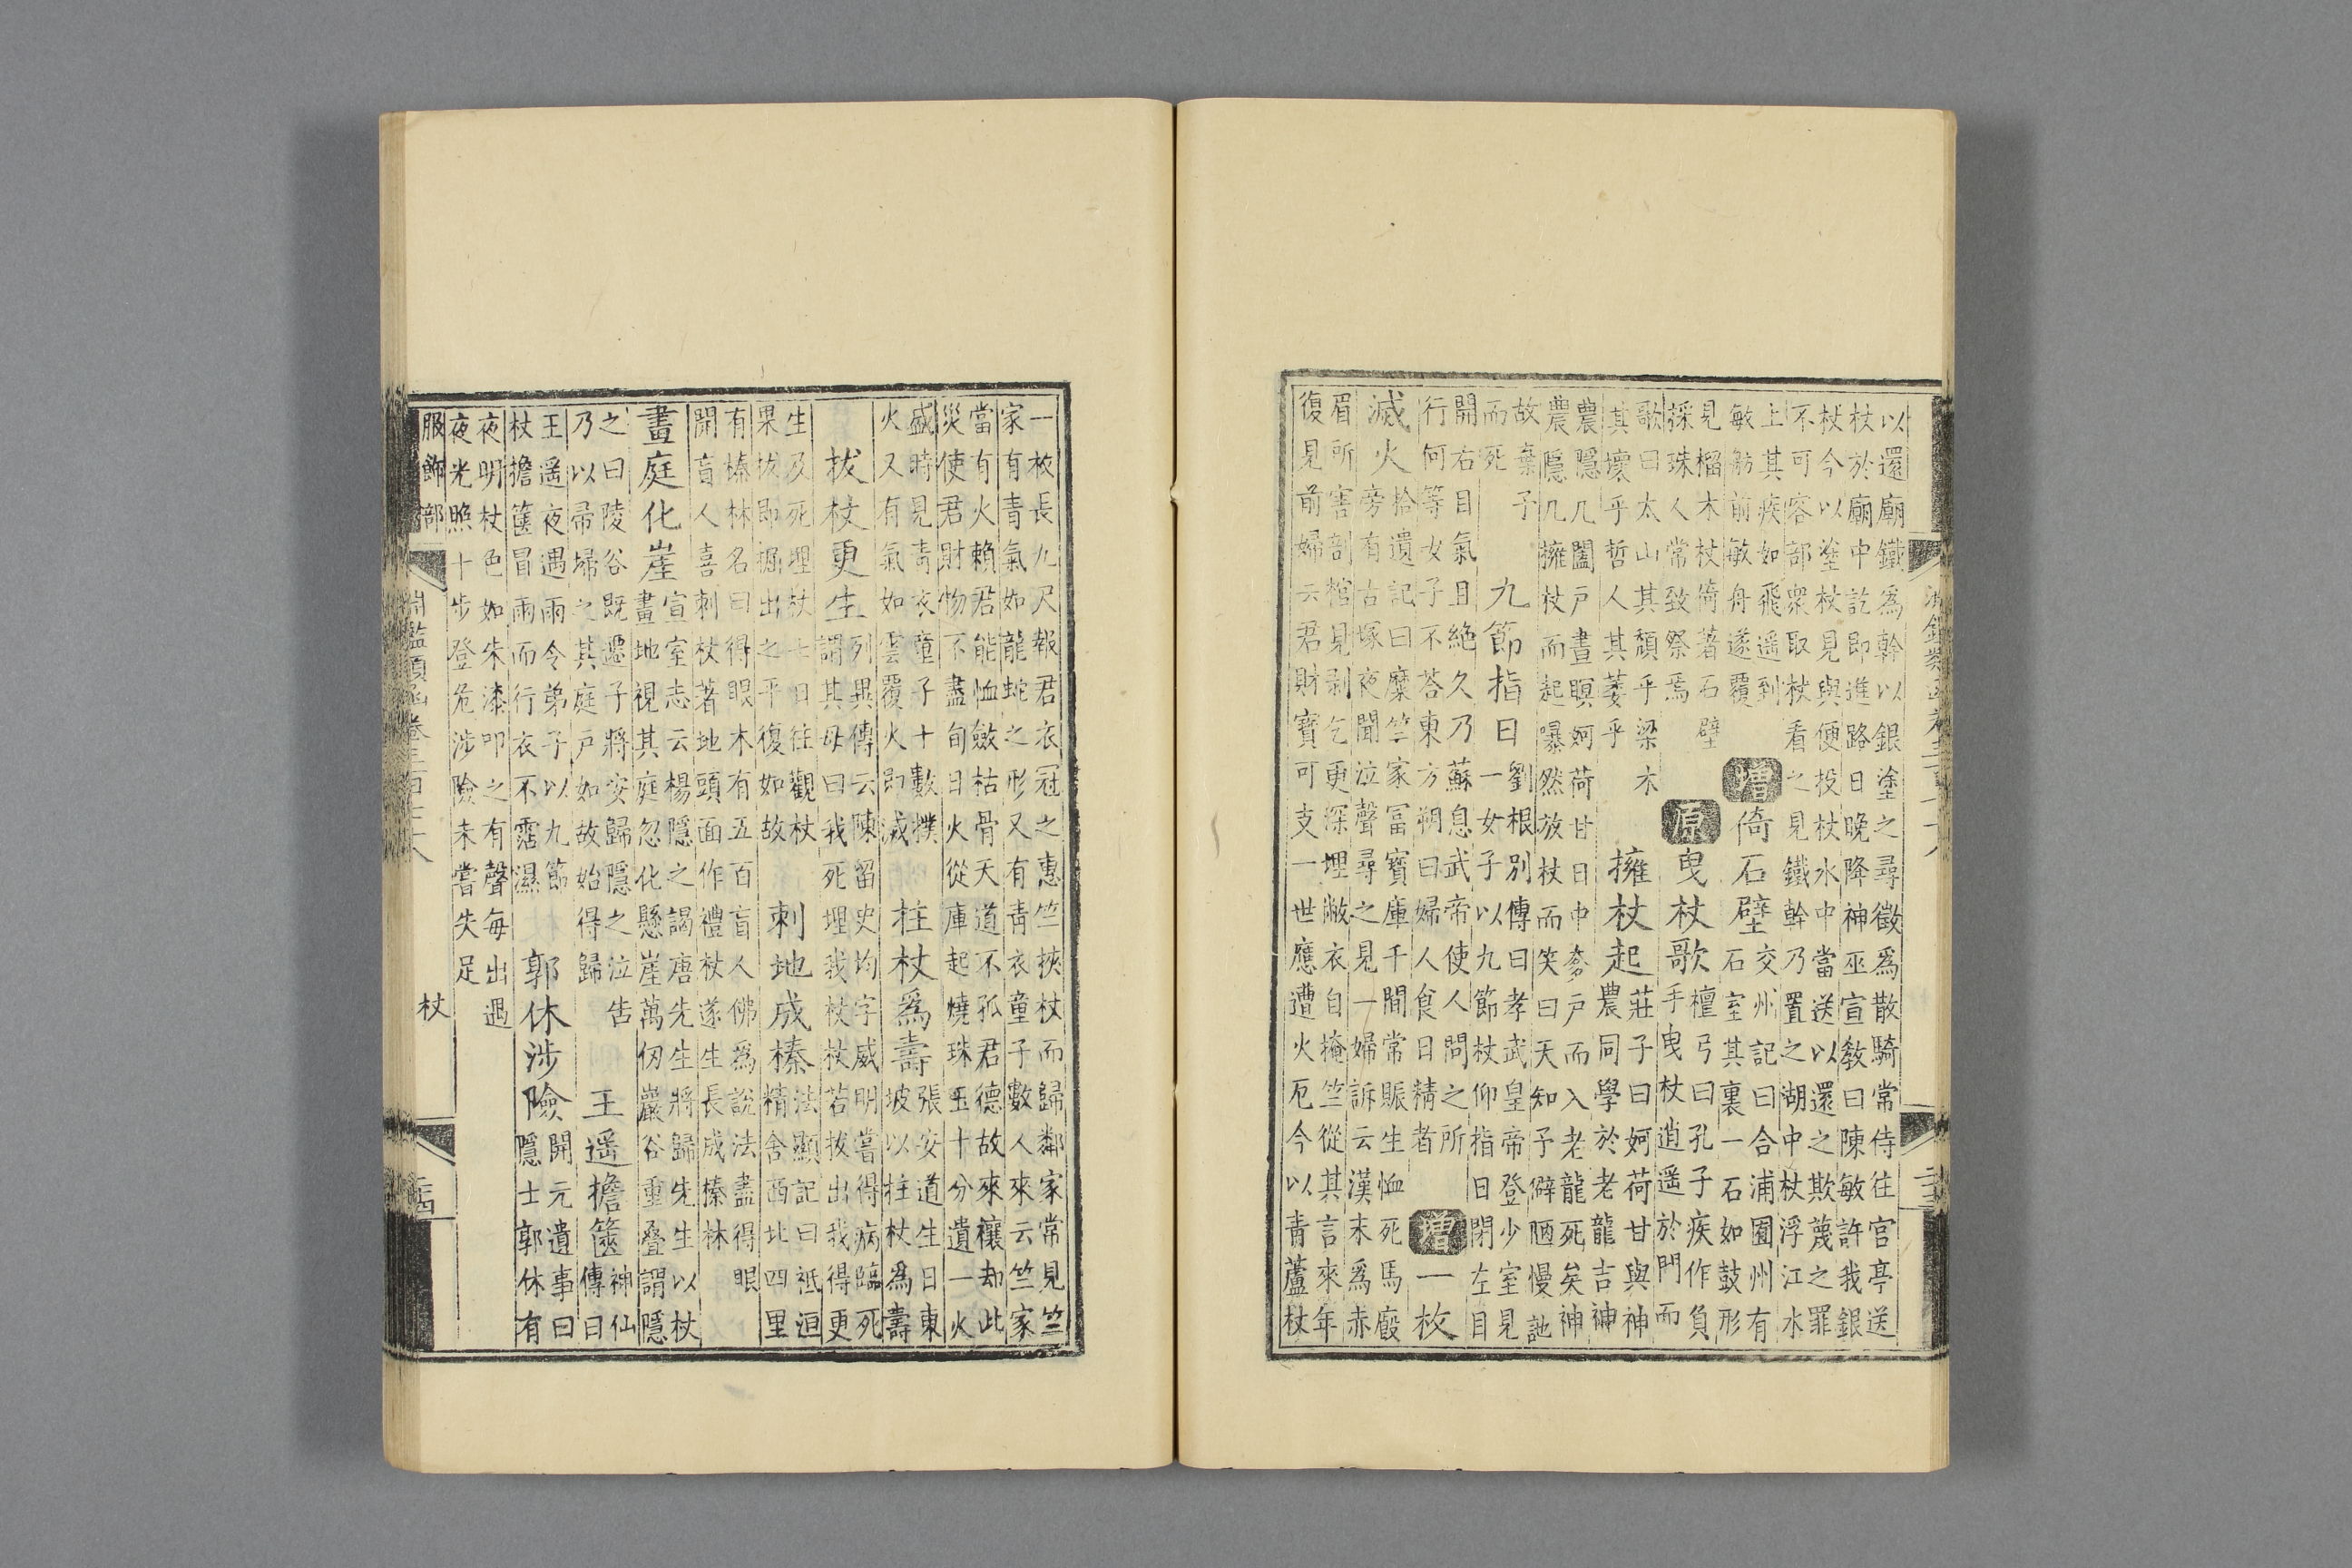 淵鑑類函卷三百七十八
二十三
以還廟鐵為幹以銀塗之尋徵為散騎常侍往宮亭送
杖於廟中訖即進路日晚降神巫宣敎曰陳敏許我銀
杖今以塗杖見與便投杖水中當送以還之欺蔑之罪
不可容部衆取杖看之見鐵幹乃置之湖中杖浮江水
上其疾如飛遥到
敏舫前敏舟遂覆
增倚石壁
交州記曰合浦圍州有
石室其裏一石如鼓形
見榴木杖倚著石壁
採珠人常致祭焉
原曳杖歌
檀弓曰孔子疾作負
手曳杖逍遥於門而
歌曰太山其頹乎梁木
其壞乎哲人其萎乎
擁杖起
莊子曰妸荷甘與神
農同學於老龍吉神
農隱几闔戶晝瞑妸荷甘日中奓戶而入老龍死矣神
農隱几擁杖而起曝然放杖而笑曰天知予僻陋慢訑
故棄子
而死
九節指日
劉根別傳曰孝武皇帝登少室見
一女子以九節杖仰指日閉左目
開右目氣且絶久乃蘇息武帝使人問之所
行何等女子不荅東方朔曰婦人食日精者
增一枚
滅火
拾遺記曰糜竺家冨寶庫千間常賑生恤死馬廄
旁有古塚夜聞泣聲尋之見一婦訴云漢末為赤
眉所害剖棺見剥乞更深埋敝衣自掩竺從其言來年
復見前婦云君財寶可支一世應遭火厄今以青蘆杖
一枚長九尺報君衣冠之惠竺挾杖而歸鄰家常見竺
家有青氣如龍蛇之形又有青衣童子數人來云竺家
當有火賴君能恤斂枯骨天道不孤君德故來禳却此
災使君財物不盡旬日火從庫起燒珠玉十分遺一火
盛時見青衣童子十數撲
火又有氣如雲覆火即滅
柱杖為壽
張安道生日東
坡以柱杖為壽
拔杖更生
列異傳云陳留史均字威明嘗得病臨死
謂其母曰我死埋我杖杖若拔出我得更
生及死埋杖七日往觀杖
果拔即掘出之平復如故
刺地成榛
法顯記曰祗洹
精舍西北四里
有榛林名曰得眼木有五百盲人佛為說法盡得眼
開盲人喜刺杖著地頭面作禮杖遂生長成榛林
畫庭化崖
宣室志云楊隱之謁唐先生將歸先生以杖
畫地視其庭忽化懸崖萬仞巖谷重疊謂隱
之曰陵谷既遷子將安歸隱之泣告
乃以帚埽之其庭戶如故始得歸
王遥擔篋
神仙
傳曰
王遥夜遇雨令弟子以九節
杖擔篋冒雨而行衣不霑濕
郭休涉險
開元遺事曰
隱士郭休有
夜明杖色如朱漆叩之有聲每出遇
夜光照十步登危涉險未嘗失足
服飾部 淵鑑類函卷三百七十八 杖 二十四